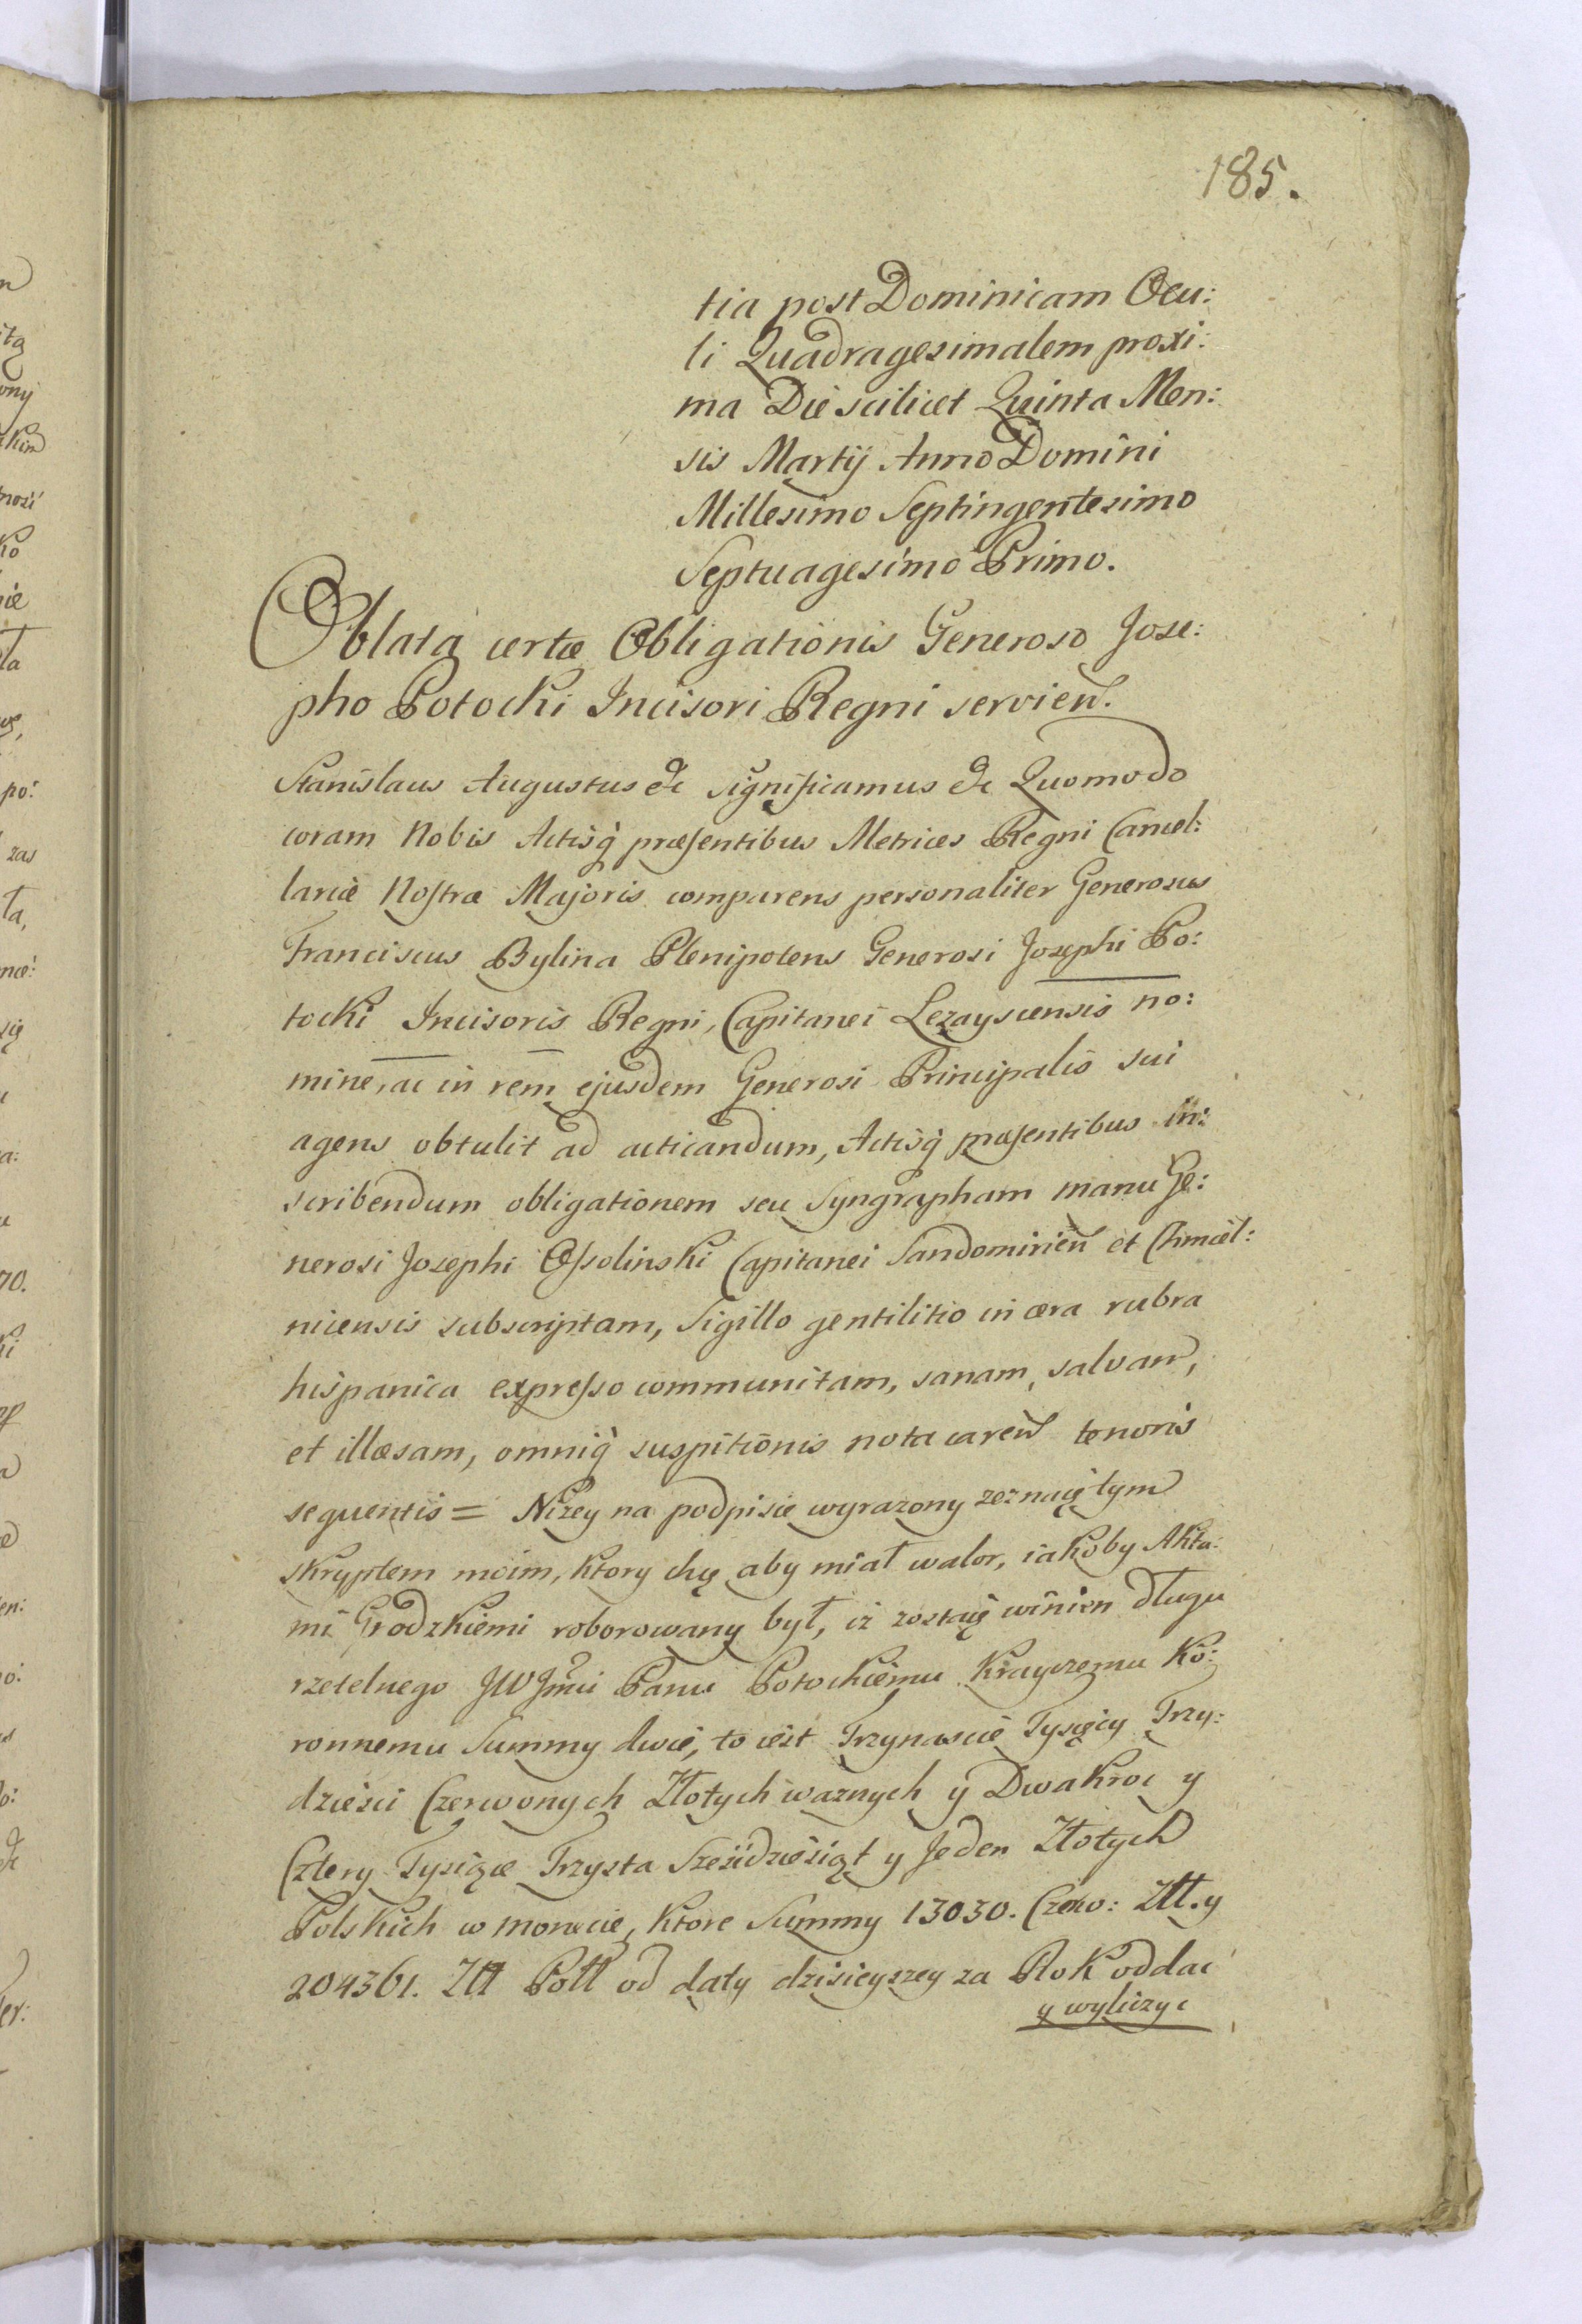 185.
tia post Dominicam Ocu:
li Quadragesimalem proxi:
ma Die scilicet Quinta Men:
sis Martij Anno Domini
Millesimo Septingentesimo
Septuagesimo Primo.
Oblata certæ Obligationis Generoso Jose:
pho Potocki Incisori Regni servien.
Stanislaus Augustus &c significamus &c Quomodo
coram Nobis Actisq̀ præsentibus Metrices Regni Cancel:
lariæ Nostræ Majoris comparens personaliter Generosus
Franciscus Bylina Plenipotens Generosi Josephi Po:
tocki Incisoris Regni, Capitanei Lezayscensis no:
mine, ac in rem ejusdem Generosi Principalis sui
agens obtulit ad acticandum, Actisq̀ præsentibus in:
scribendum obligationem seu Syngrapham manu Ge:
nerosi Josephi Ossolinski Capitanei Sandomirien et Chmiel:
nicensis subscriptam, Sigillo gentilitio in cera rubra
hispanica expresso communitam, sanam, salvam,
et illæsam, omniq̀ suspitionis nota caren tenoris
sequentis = Niżey na podpisie wyrazony zeznaię tym
skryptem moim, ktory chcę aby miał walor, iakoby Akta:
mi Grodzkiemi roborowany był, iż zostaię winien długu
rzetelnego JW Jmci Panu Potockiemu Krayczemu Ko:
ronnemu Summy dwie, to iest Trzynascie Tysięcy Trzy:
dziesci Czerwonych Złotych ważnych y Dwakroc y
Cztery Tysiące Trzysta Sześćdziesiąt y Jeden Złotych
Polskich w monecie, ktore Summy 13030. Czerw: Złł. y
204361. Złł Poll od daty dzisieyszey za Rok oddać
y wyliczyc